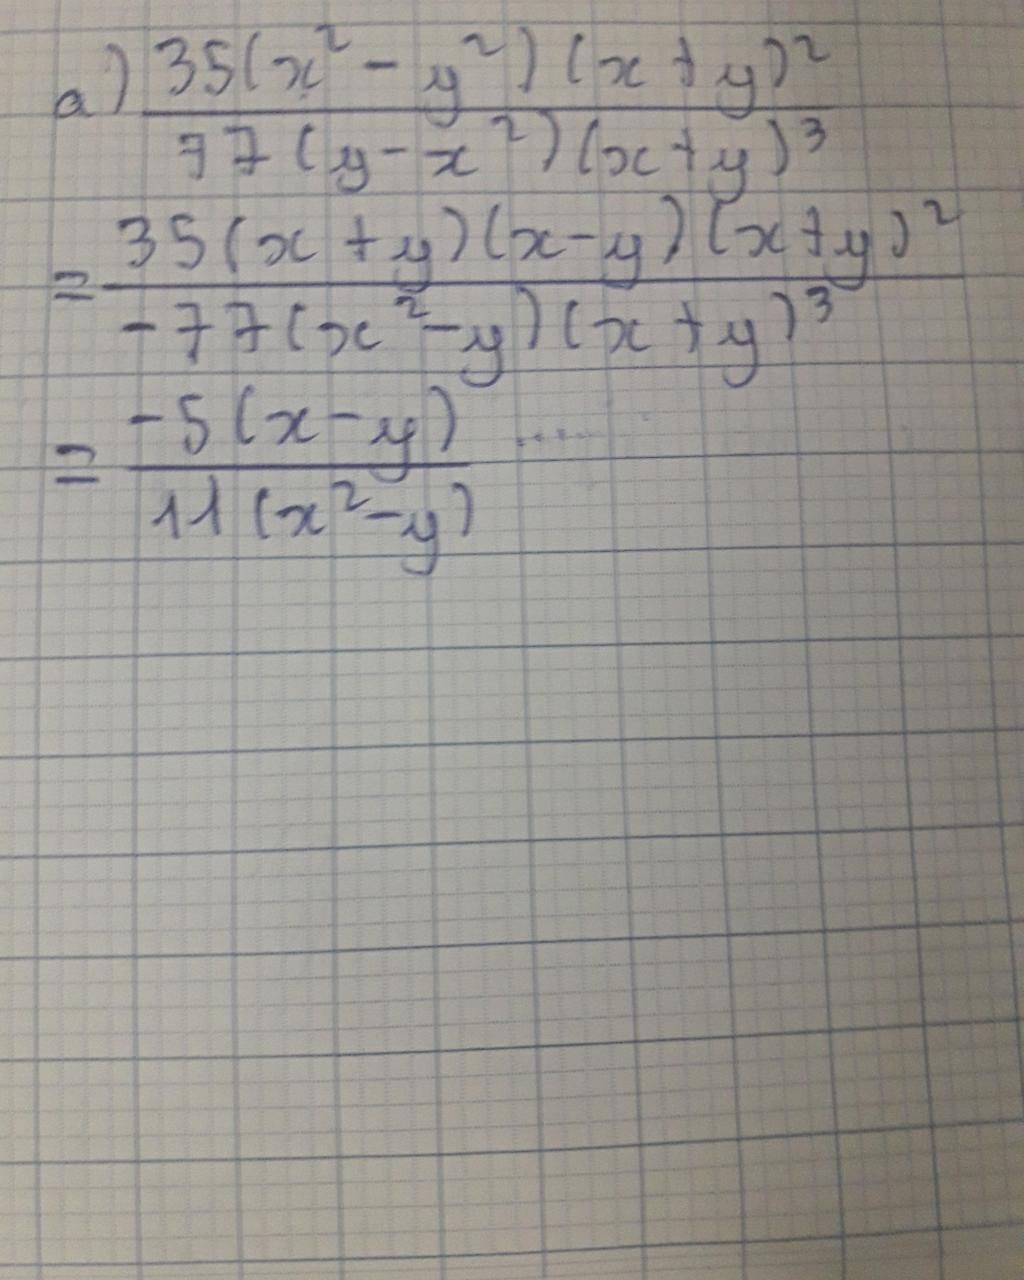 a) 35(x² - y²)(x + y)²
77(y - x²)(x + y)³
= 35(x + y)(x - y)(x + y)²
-77(x² - y)(x + y)³
= -5(x - y) .....
11(x² - y)